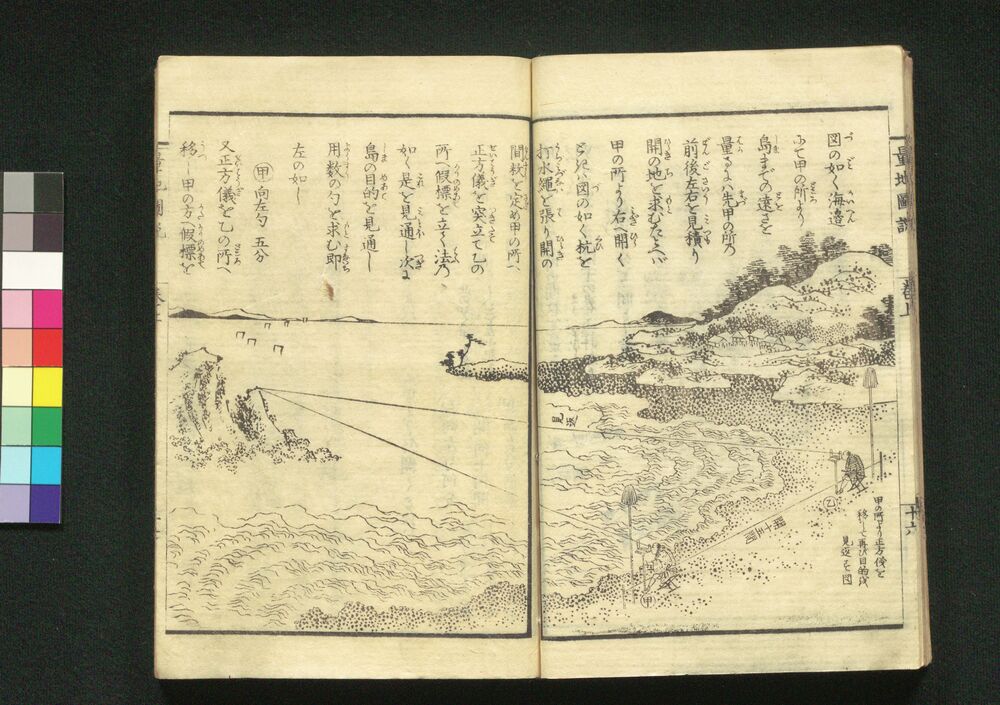 量地圖説
卷上
十六
図の如く海邉
にて甲の所より
島までの遠さを
量るには先甲の所の
前後左右を見積り
開の地を求むたとへバ
甲の所より右へ開く
ときハ図の如く杭を
打水縄を張り開の
間数を定め甲の所へ
正方儀を突立て乙の
所へ假標を立て法の
如く是を見通し次に
島の目的を見通し
用数の勺を求む即
左の如し
甲 向左勺 五分
又正方儀を乙の所へ
移し甲の方假標を
見返
乙
開十三間
甲
甲の所より正方儀を
移して再び目的を
見返す図